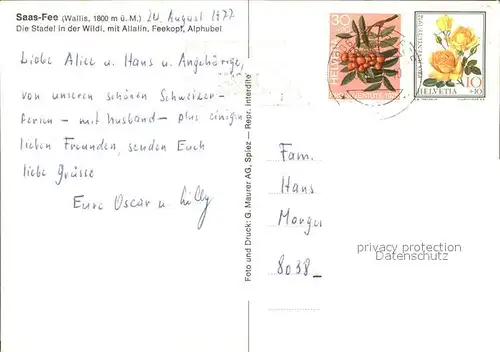 Saas-Fee (Wallis, 1800 m ü. M.) 24. August 1977
Die Stadel in der Wildi, mit Allalin, Feekopf, Alphubel
Liebe Alice u. Hans u. Angehörige,
von unseren schönen Schweizer-
ferien - mit husband - plus einigen
lieben Freunden, senden Euch
liebe Grüsse
Eure Oscar u. Lilly
Foto und Druck: G. Maurer AG, Spiez — Repr. interdite
30
HELVETIA
10
+10
HELVETIA
Fam.
Hans
8038
privacy protection
Datenschutz